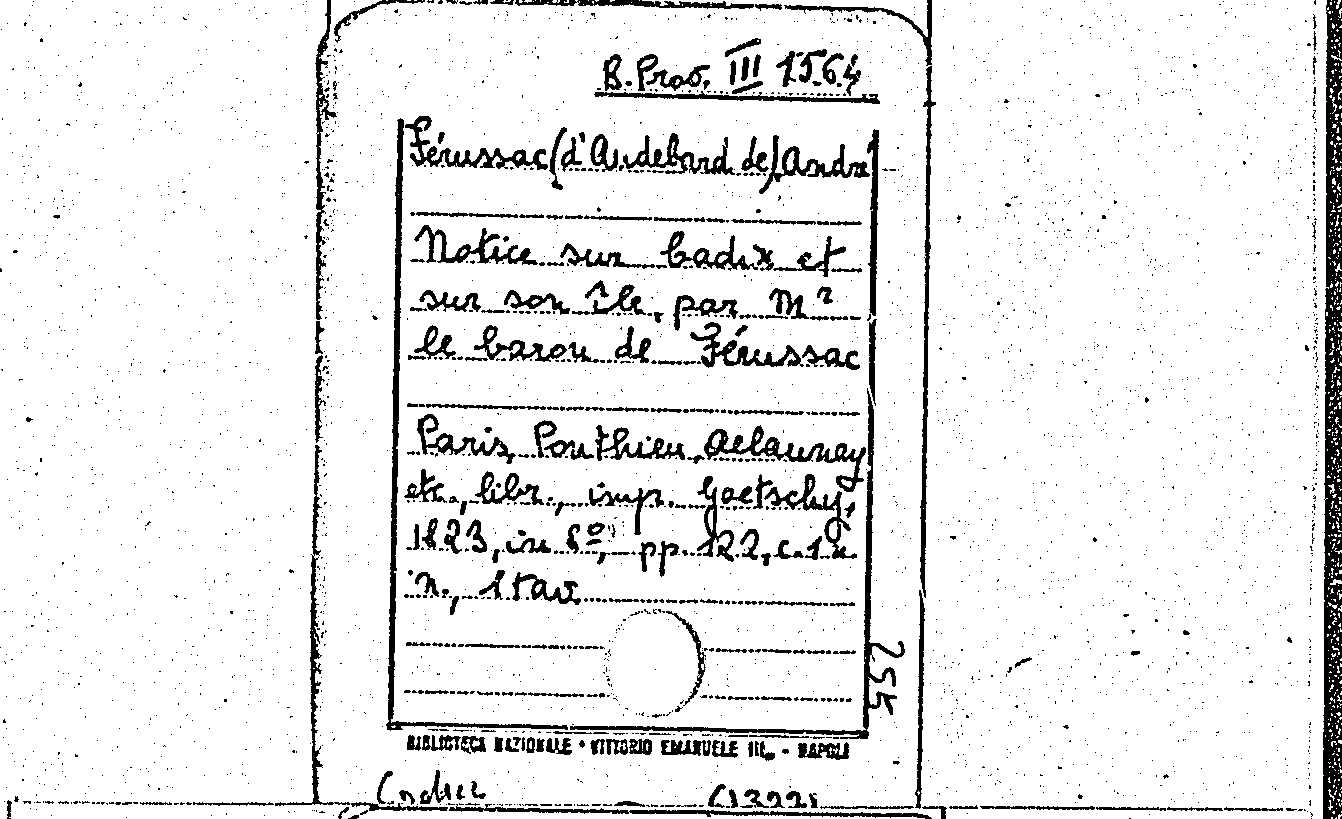 B. Prov. III 1564
Férussac (d'Audebard de), André
Notice sur Cadix et
sur son île, par Mr
le baron de Férussac
Paris, Ponthieu, Delaunay
etc., libr., imp. Goetschy,
1823, in 8º, pp. 122, c. 1 n.
n., 1 tav.
255
BIBLIOTECA NAZIONALE • VITTORIO EMANUELE III - NAPOLI